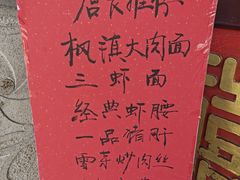 店长推荐
枫滇大肉面
三虾面
经典虾腰
一品猪肝
雪菜炒肉丝